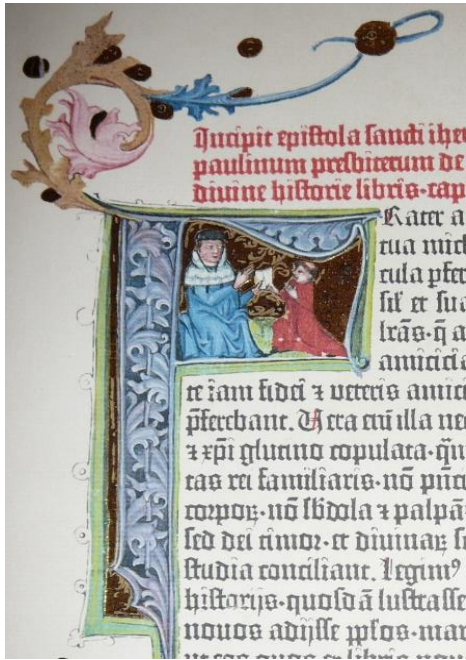 Incipit epistola sancti ihe
paulinum presbiterum de
divine historie libris·cap
FRater a
tua mich
cula pfer
sil et sua
lrãs·q̃ a
amicicia
te iam fidei ⁊ veteris amic
p̃ferebant. Vera eni̅ illa ne
⁊ xp̃i glutino copulata·qu̅
tas rei familiaris·nõ pñc
corpoꝝ·nõ sb̃dola ⁊ palpã
sed dei timor·et divinaꝝ s
studia conciliant. Legim⁹
historijs·quosdã lustrasse
novos adijsse pp̃los·mar
ut eos quos ex libris nov